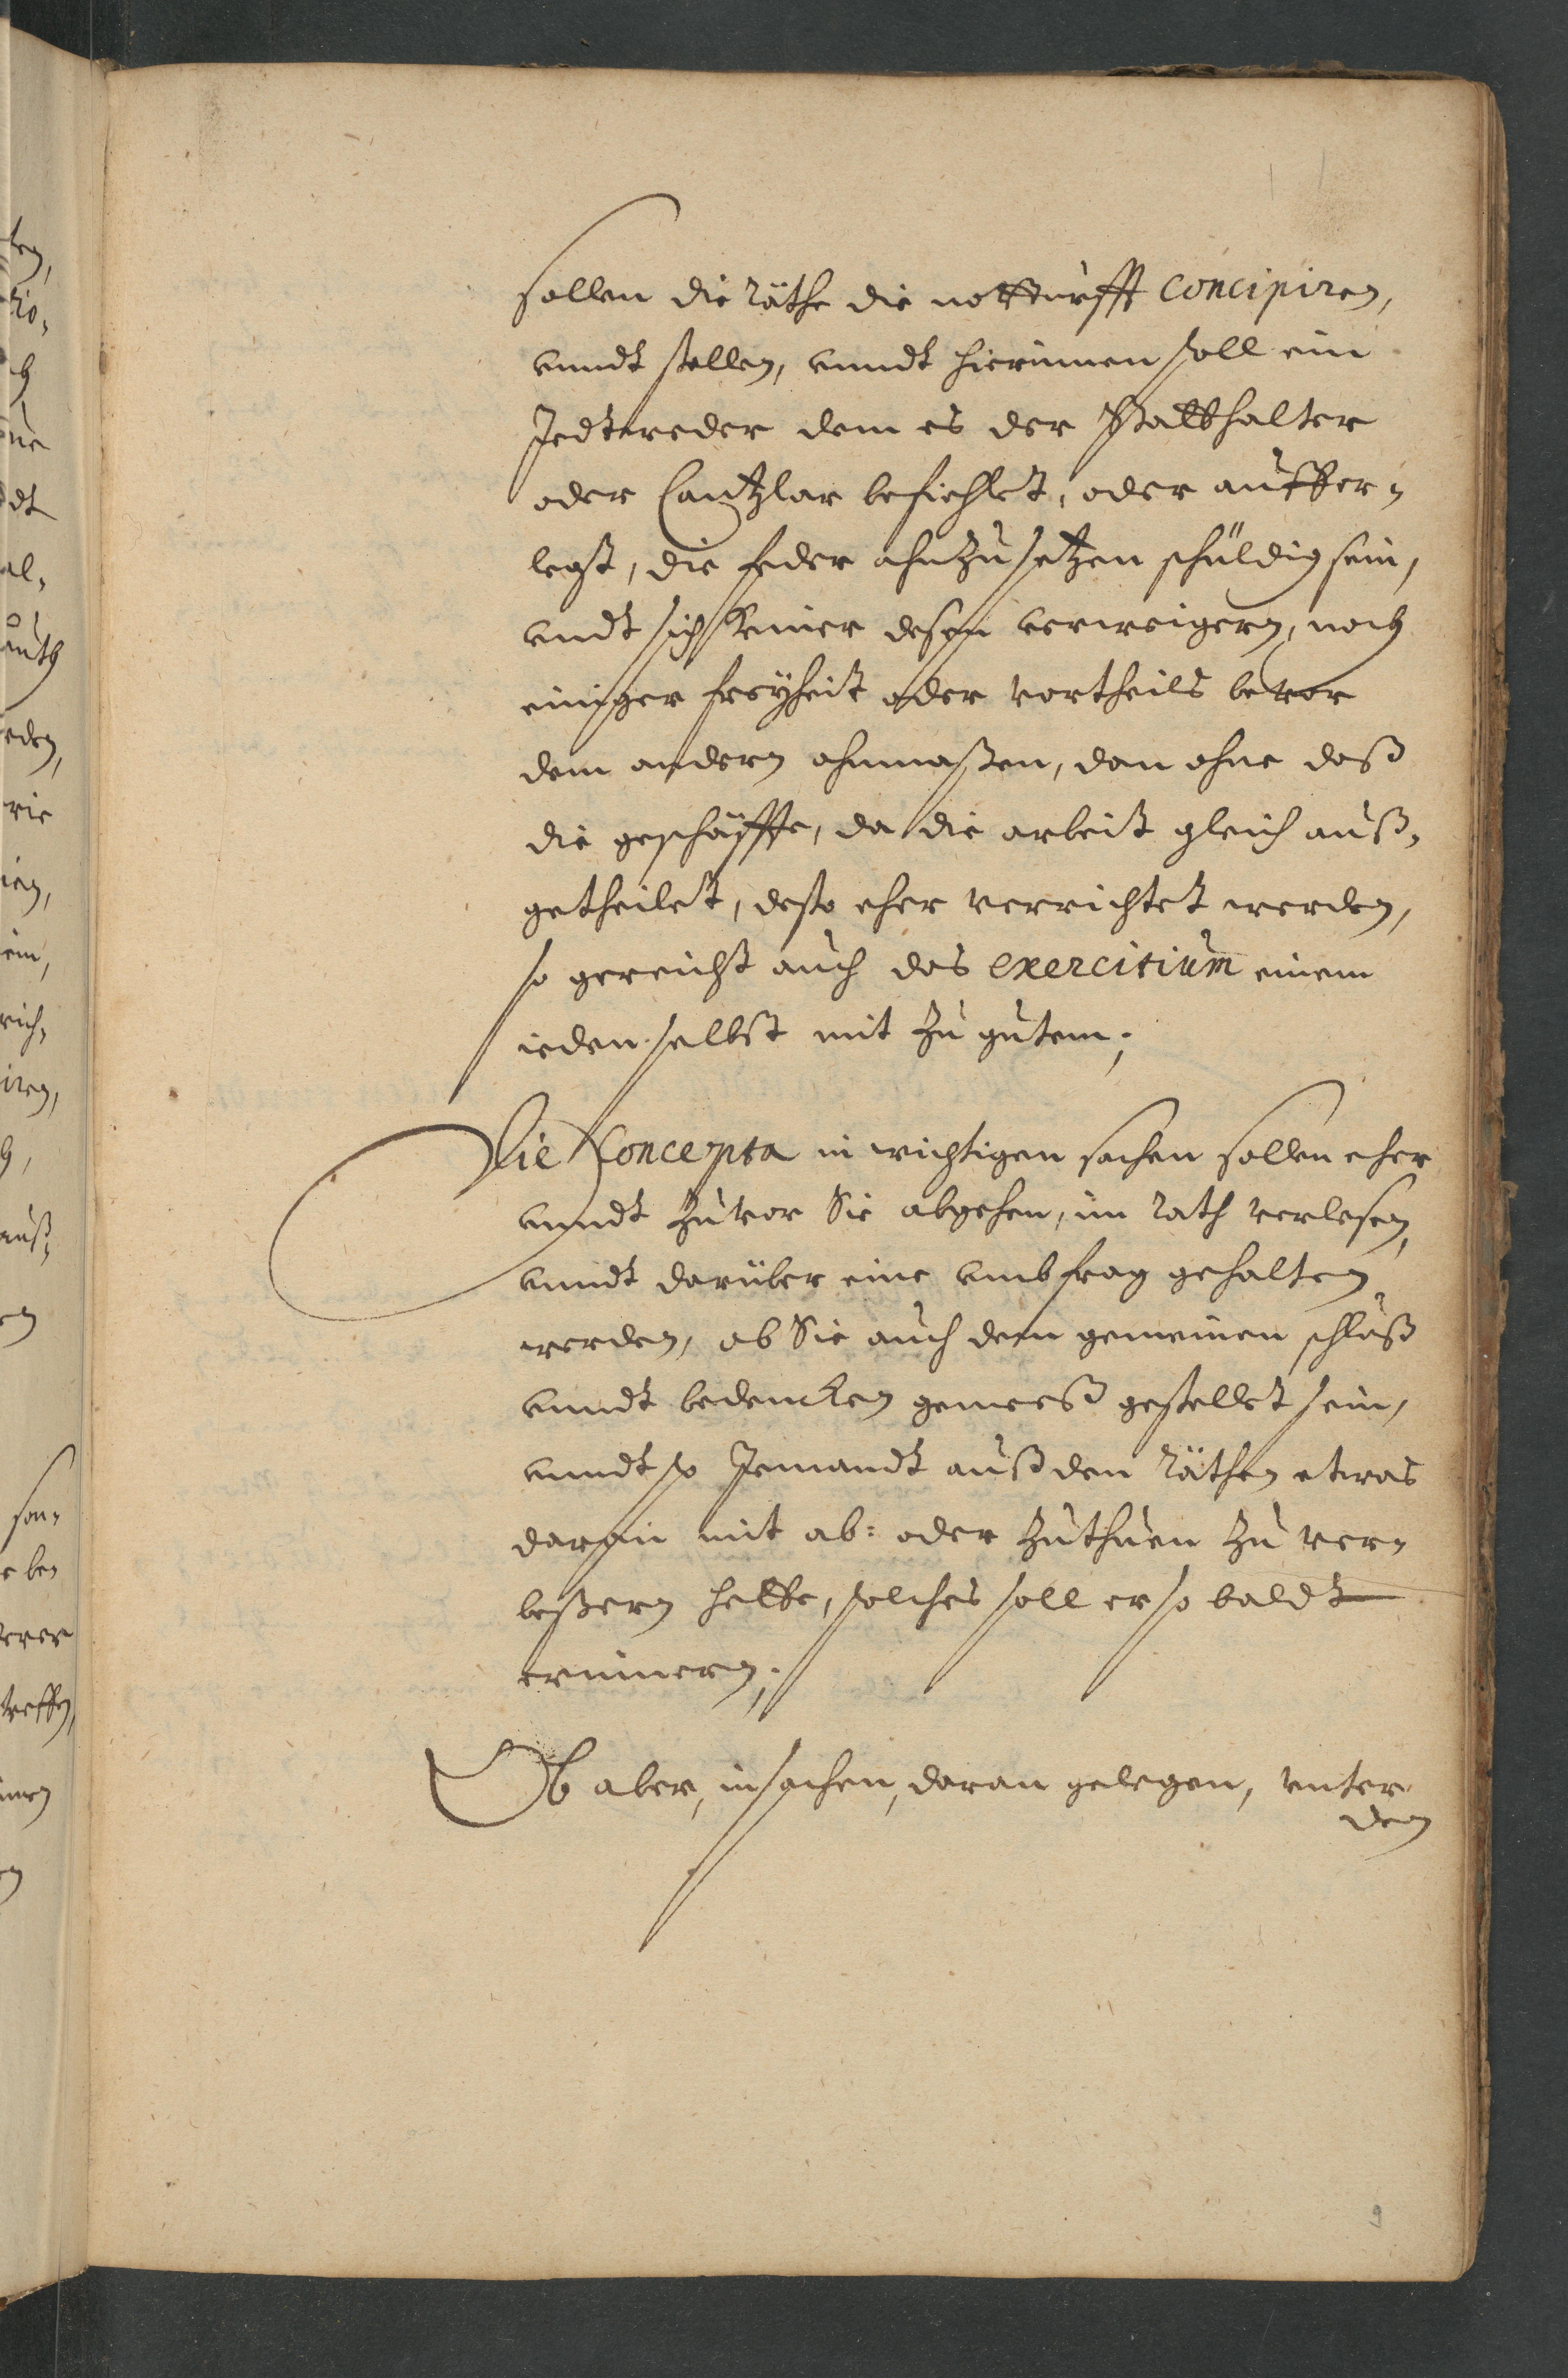 sollen die Räthe die notturfft concipiren,
vnndt stellen, vnndt hierinnen soll ein
Jedtweder dem es der Statthalter
oder Cantzlar befiehlet, oder auffer-
legt, die feder ahnzusetzen schuldig sein,
vndt sich keiner deßen verweigern, noch
einiger freÿheit oder vortheils bevor
dem andern ahnmaßen, dan ohne daß
die geschäffte, da die arbeit gleich auß-
getheilet, desto eher verrichtet werden,
so gereicht auch das exercitium einem
ieden selbst mit zu gutem;
Die Concepta in wichtigen sachen sollen eher
vnndt zuvor Sie abgehen, im Rath verlesen,
vnndt darüber eine vmbfrag gehalten
werden, ob Sie auch dem gemeinen schluß
vnndt bedencken gemeeß gestellet sein,
vnndt so Jemandt auß den Räthen etwas
daran mit ab: oder zuthuen zu ver-
beßern hette, solches soll er so baldt
erinnern;
Ob aber, in sachen, daran gelegen, vnter
den
9